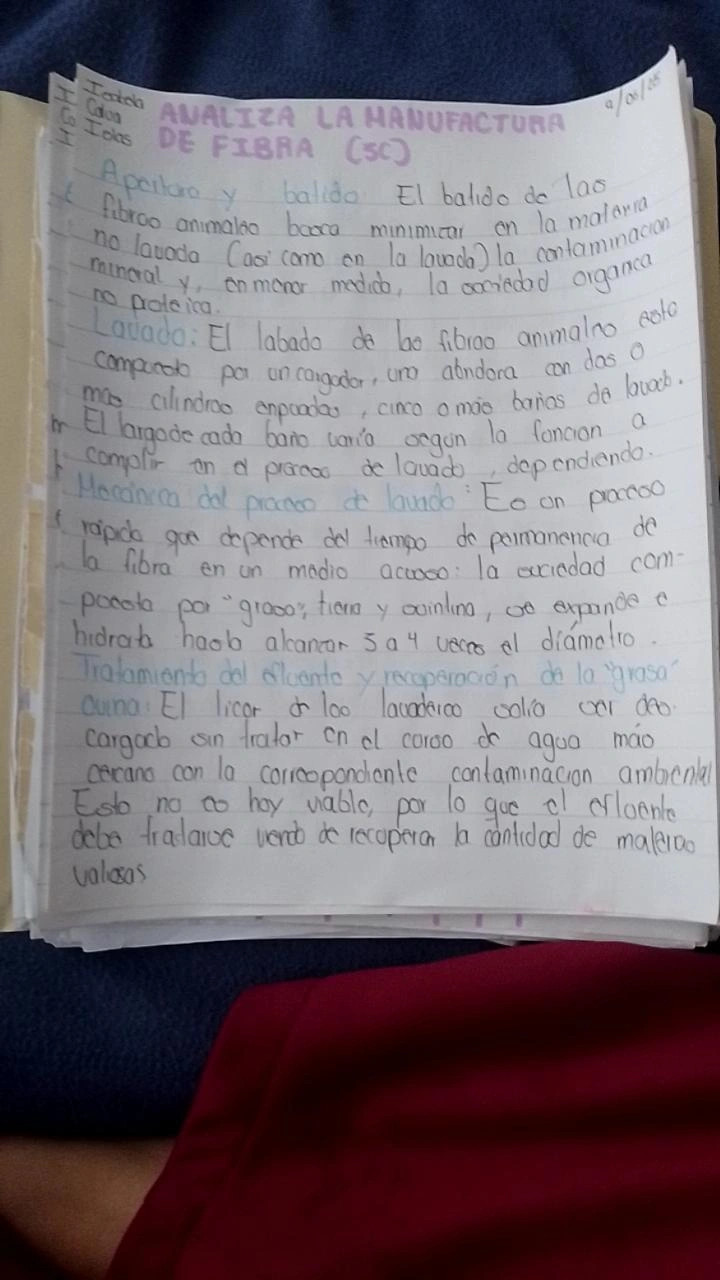 ANALIZA LA MANUFACTURA
DE FIBRA (SC)
Apertura y batido El batido de las
fibras animales busca minimizar en la materia
no lavada (asi como en la lavada) la contaminacion
mineral y, en menor medida, la sociedad organica
no proteica.
Lavado: El labado de las fibras animales esta
compuesto por un cargador, una abridora con dos o
más cilindros enpuados, cinco o más bañas de lavado.
El largo de cada baño varía segun la funcion a
complir en el proceso de lavado, dependiendo.
Mecanica del proceso de lavado: Es un proceso
rápido que depende del tiempo de permanencia de
la fibra en un medio acuoso: la suciedad com-
puesta por "grasa", tierra y suintina, se expande e
hidrata hasta alcanzar 3 a 4 veces el diámetro.
Tratamiento del efluente y recuperación de la "grasa"
ouina: El licor de los lavaderos solía ser des-
cargado sin tratar en el curso de agua más
cercano con la correspondiente contaminacion ambiental
Esto no es hoy viable, por lo que el efluente
debe tratarse viendo de recuperar la cantidad de materias
valiosas